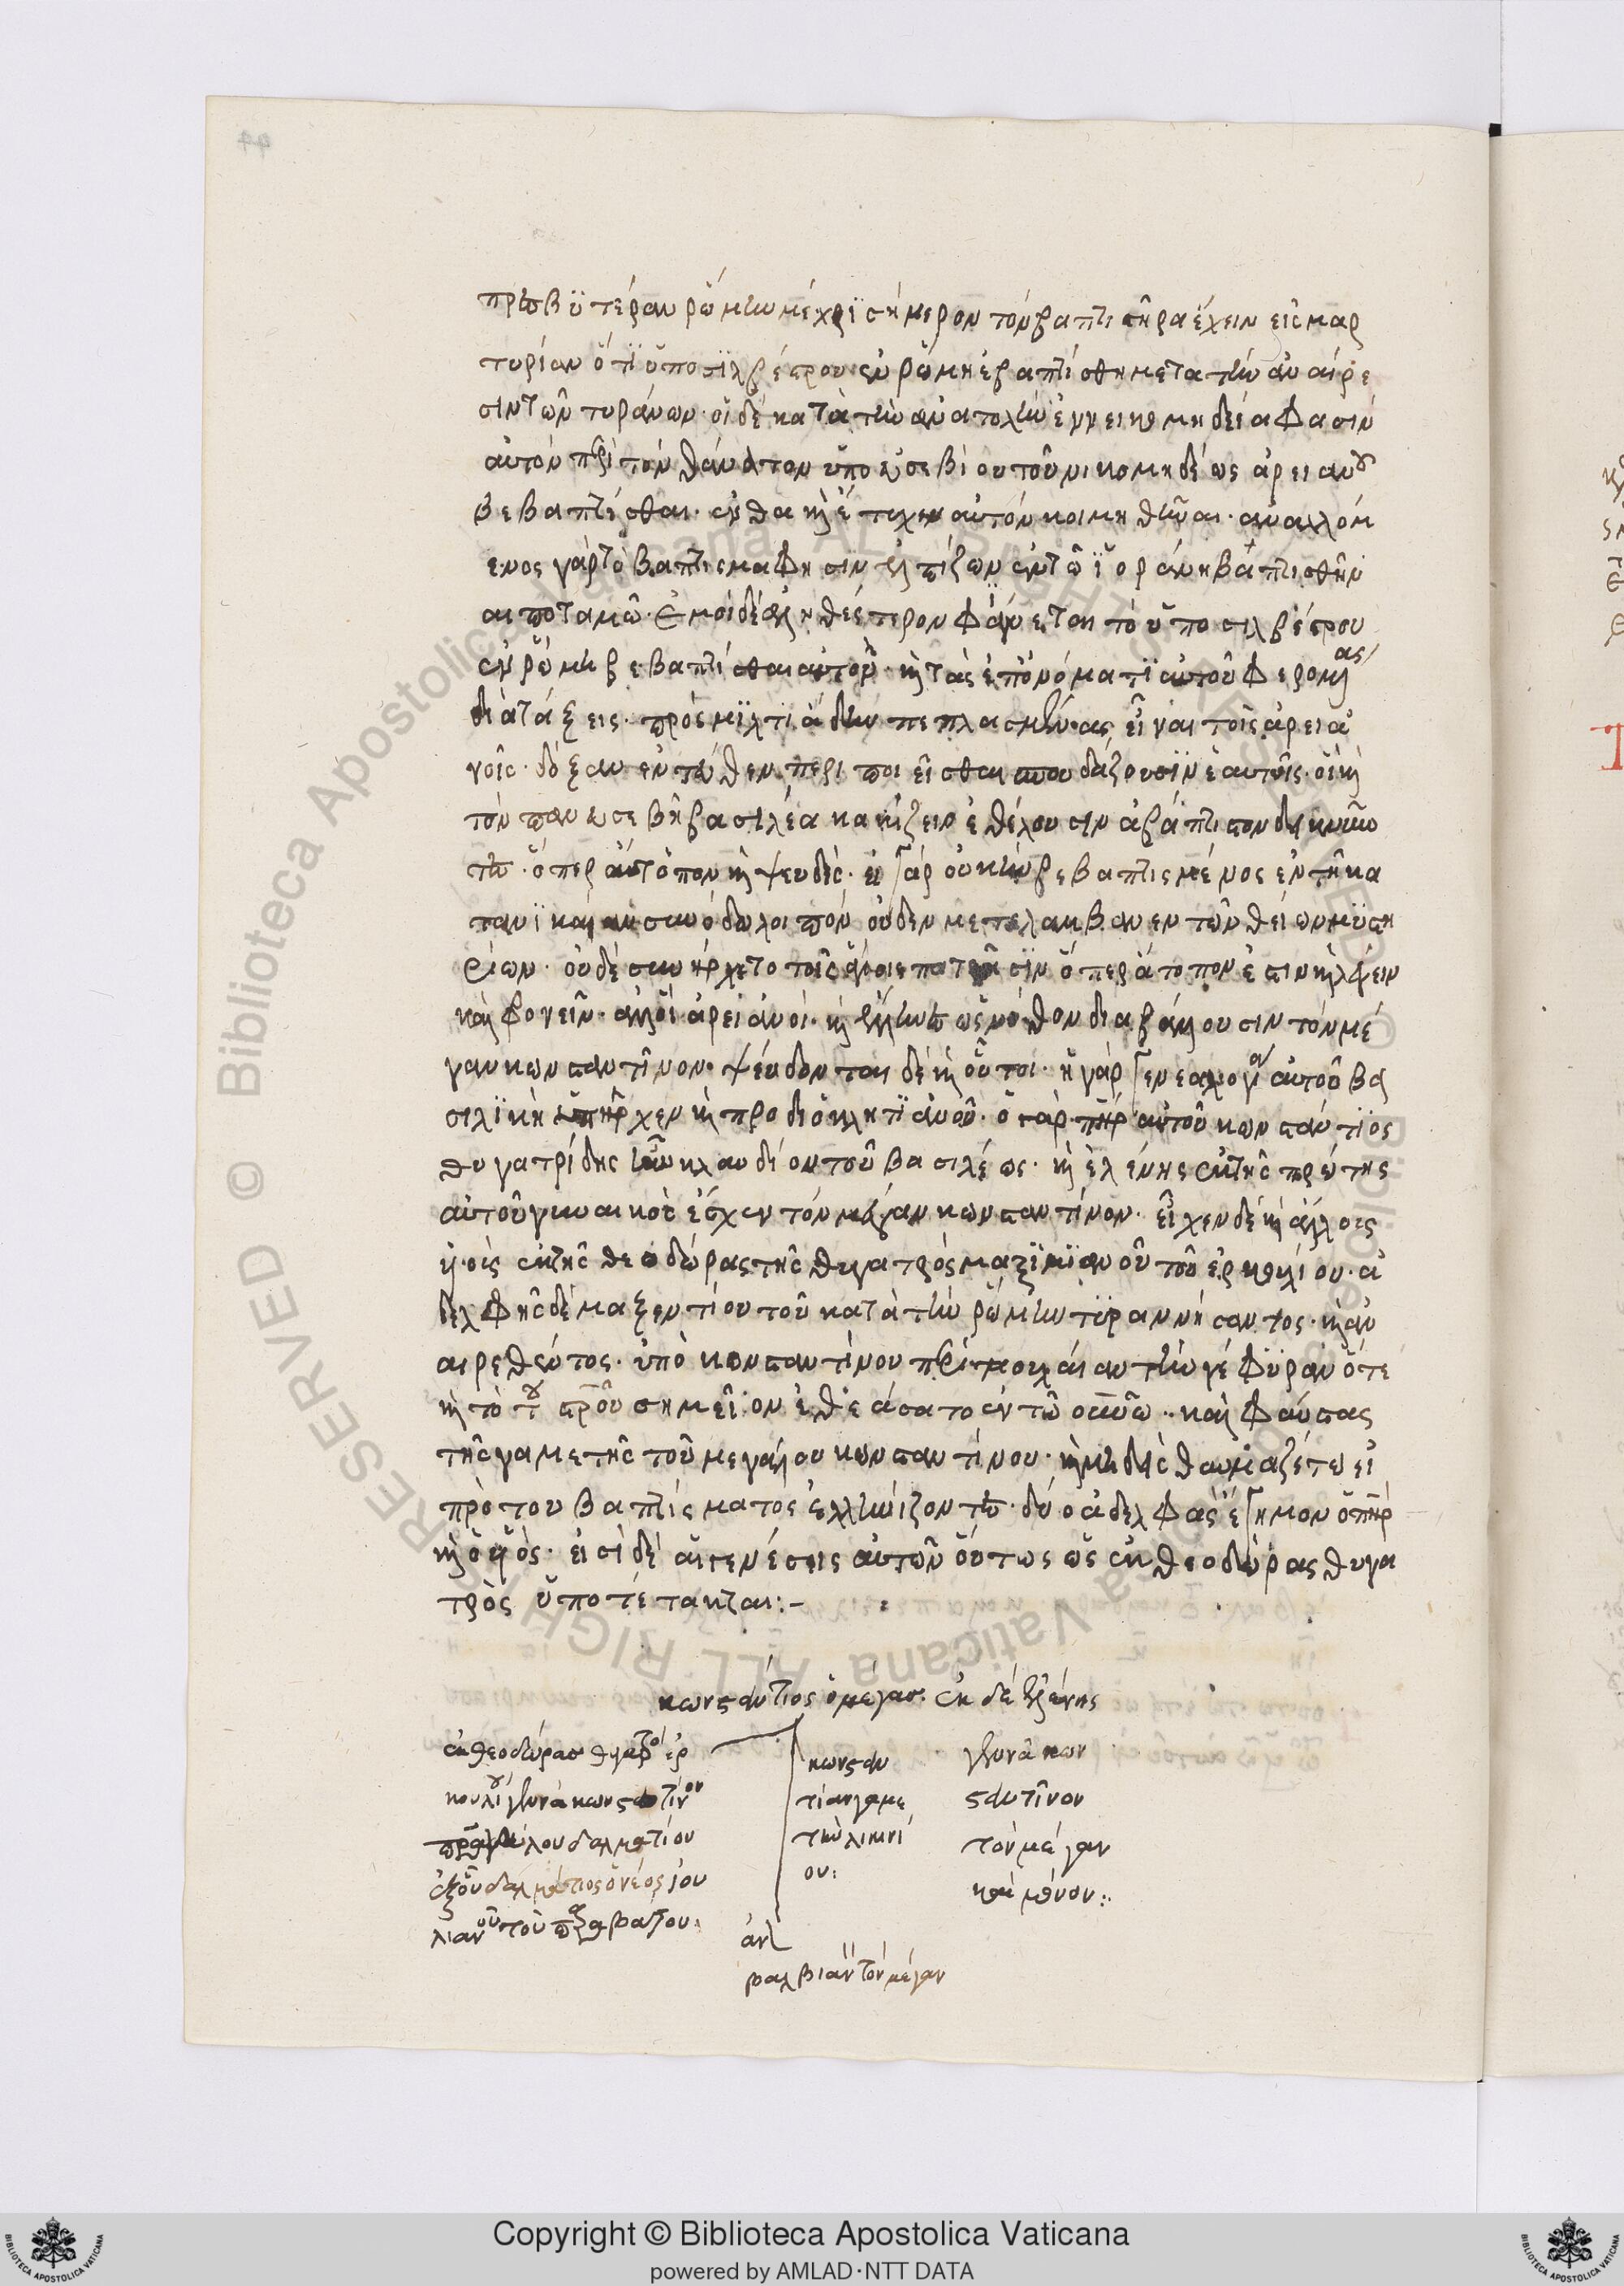 πρεσβϋτέραν ρώμην μέχρϊ σήμερον τόν βαπτιστῆρα έχειν εἰς μαρ
τυρίαν ὅτϊ ὑπο σϊλβέστρου ἐν ρώμη ἐβαπτίσθη μετα τὴν ἀναίρε
σιν τῶν τυράνων· οἱ δέ κατὰ τὴν ἀνατολὴν ἐν νεικομηδεία φασὶν
αὐτόν περὶ τόν θάνατον ὑπο εὐσεβίου τοῦ νικομηδέως ἀρειανοῦ
βεβαπτίσθαι· ἔνθα κὶ ἔτυχεν αὐτόν κοιμηθῆναι· ἀναλλόμ
ενος γάρ τὸ βαπτισμα φησὶν ἐλπίζων ἐν τῶ ϊορδάνη βαπτισθῆν
αι ποταμῶ· ἐμοί δέ ἀληθέστερον φαίνεται τὸ ὑπο σιλβέστρου
ἐν ρώμη βεβαπτίσθαι αὐτόν· κὶ τὰς ἐπ' ὀνόματϊ αὐτοῦ φερομένας
διατάξεις· πρὸς μϊλτιάδην πεπλασμένας εἶναι τοῖς ἀρεια
νοῖς· δόξαν ἐντεῦθεν περιποιεῖσθαι σπουδάζουσϊν ἑαυτοῖς· οἱ κὶ
τὸν πανευσεβῆ βασιλέα κακίζειν ἐθέλουσιν ἀβάπτιστον δεικνύον
τες· ὅπερ ἄτοπον κὶ ψευδές· εἰ γάρ οὐκ ἦν βεβαπτισμένος ἐν τῆ κα
τανϊκαίαν συνόδω λοιπόν οὐδεν μετελαμβανεν τῶν θείων μϋστη
ρίων· οὐδέ συνήρχετο τοῖς ἁγίοις πατρᾶσϊν ὅπερ ἄτοπον ἐστιν κὶ λέγειν
καὶ φρονεῖν· ἀλλ' οἱ ἀρειανοί· κὶ ἕλληνες ὡς νόθον διαβάλλουσιν τόν μέ
γαν κωνσταντῖνον· ψεύδονται δέ κὶ οὗτοι· ἡ γάρ γενεαλογία αὐτοῦ βα
σιλϊκὴ ὑπῆρχεν κὶ προ διοκλητϊανοῦ· ὁ γάρ πηρ αὐτοῦ κωνστάντϊος
θυγατρίδης ἦν κλαυδίου τοῦ βασιλέως· κὶ ἑλένης ἐκ τῆς πρώτης
αὐτοῦ γυναικός ἔσχεν τόν μέγαν κωνσταντίνον· εἶχεν δέ κὶ ἄλλους
υἱοὺς ἐκ τῆς θεοδώρας τῆς θυγατρὸς μαξϊμϊανοῦ τοῦ ἐρκουλίου· ἀ
δελφῆς δέ μαξεντίου τοῦ κατὰ τὴν ρώμην τϋραννήσαντος· κὶ ἀν
αιρεθέντος· ὑπὸ κωνσταντίνου περὶ μουλϊαν τὴν γέφϋραν ὅτε
κὶ τὸ τοῦ στροῦ σημεῖον ἐθεάσατο ἐν τῶ οὐνῶ· καὶ φαύστας
τῆς γαμετῆς τοῦ μεγάλου κωνσταντίνου· κὶ μηδείς θαυμαζέτω εἰ
πρὸ του βαπτίσματος ἑλληνίζοντες· δύο ἀδελφάς ἔγημον ὁ πηρ
κὶ ὁ υἱός· εἰσὶ δέ αἱ γενέσεις αὐτῶν οὕτως ὡς ἐκ θεοδώρας θυγα
τρὸς ὑποτέτακται:-
κωνστάντιος ὁ μέγας· ἐκ δέ ἑλένης
ἐκ θεοδώρας θυγατρὸς ἐρ
κουλίου γεννᾶ κωνσταντῖνον
δαλματίου
ἐξ οὗ δαλμάτιος ὁ νέος ἰου
λιανοῦ τοῦ παραβάτου:
κωνσταν
τίαν γαμε
τὴν λικινί
ου:
γεννᾶ κων
σταντῖνον
τὸν μέγαν
καὶ μόνον: